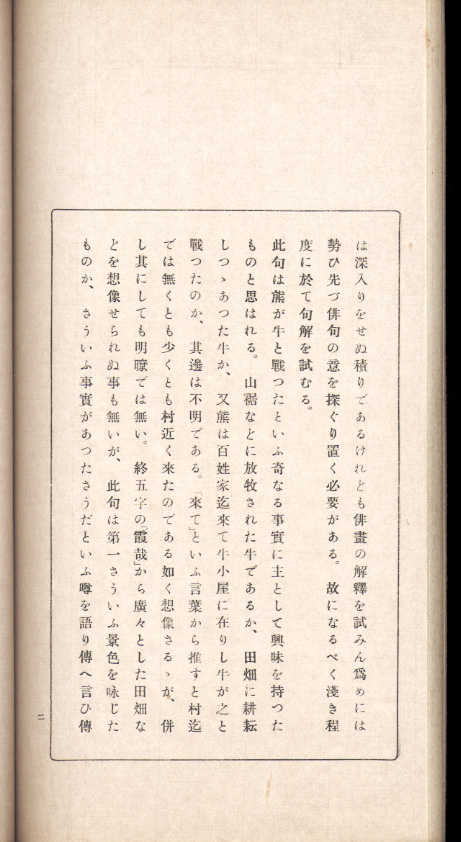 は深入りをせぬ積りであるけれども俳畫の解釋を試みん爲めには
勢ひ先づ俳句の意を探ぐり置く必要がある。故になるべく淺き程
度に於て句解を試むる。
此句は熊が牛と戰つたといふ奇なる事實に主として興味を持つた
ものと思はれる。山裾などに放牧された牛であるか、田畑に耕耘
しつゝあつた牛か、又熊は百姓家迄來て牛小屋に在りし牛が之と
戰つたのか、其邊は不明である。「來て」といふ言葉から推すと村迄
では無くとも少くとも村近く來たのである如く想像さるゝが、併
し其にしても明瞭では無い。終五字の「霞哉」から廣々とした田畑な
どを想像せられぬ事も無いが、此句は第一さういふ景色を咏じた
ものか、さういふ事實があつたさうだといふ噂を語り傳へ言ひ傳
二